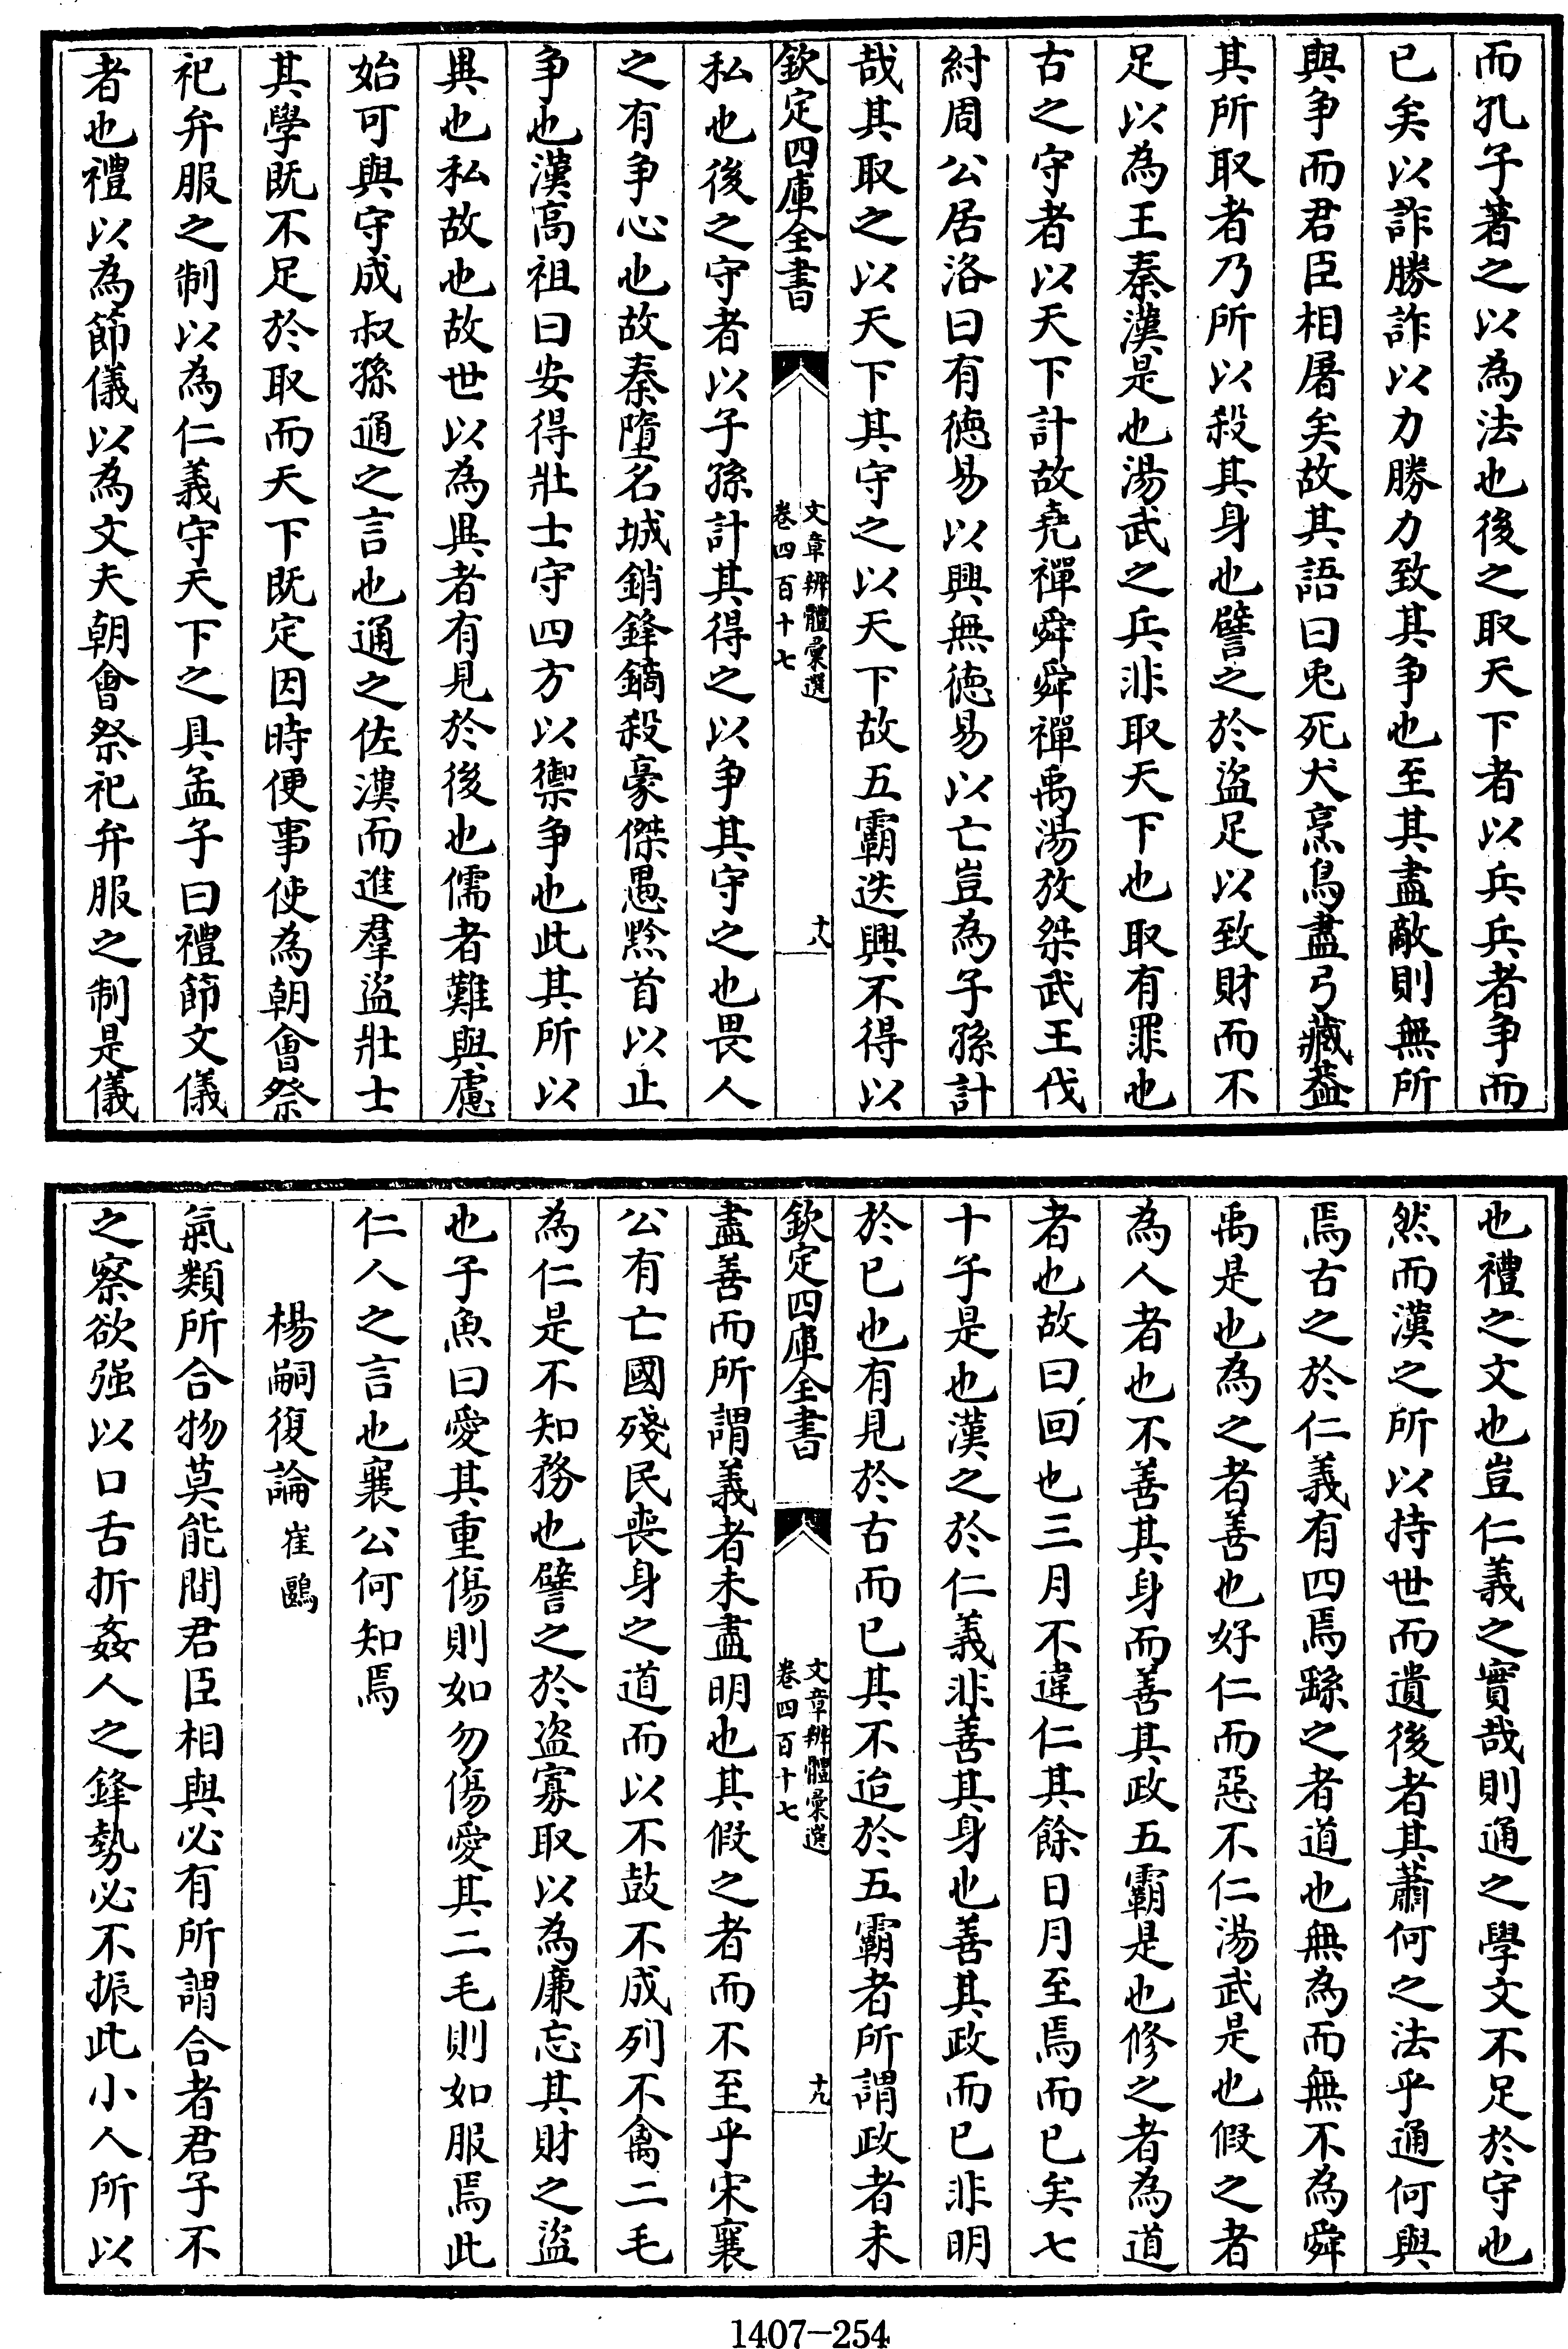 而孔子著之以為法也後之取天下者以兵兵者争而
已矣以詐勝詐以力勝力致其争也至其盡敵則無所
與争而君臣相屠矣故其語曰兎死犬烹鳥盡弓藏葢
其所取者乃所以殺其身也譬之於盜足以致財而不
足以為王秦漢是也湯武之兵非取天下也取有罪也
古之守者以天下計故堯禪舜舜禪禹湯放桀武王伐
紂周公居洛曰有徳易以興無徳易以亡豈為子孫計
哉其取之以天下其守之以天下故五霸迭興不得以
欽定四庫全書
文章辨體彙選
卷四百十七
十八
私也後之守者以子孫計其得之以争其守之也畏人
之有争心也故秦墮名城銷鋒鏑殺豪傑愚黔首以止
争也漢高祖曰安得壯士守四方以禦争也此其所以
異也私故也故世以為異者有見於後也儒者難與慮
始可與守成叔孫通之言也通之佐漢而進羣盜壯士
其學既不足於取而天下既定因時便事使為朝會祭
祀弁服之制以為仁義守天下之具孟子曰禮節文儀
者也禮以為節儀以為文夫朝會祭祀弁服之制是儀
也禮之文也豈仁義之實哉則通之學文不足於守也
然而漢之所以持世而遺後者其蕭何之法乎通何與
焉古之於仁義有四焉繇之者道也無為而無不為舜
禹是也為之者善也好仁而惡不仁湯武是也假之者
為人者也不善其身而善其政五霸是也修之者為道
者也故曰回也三月不違仁其餘日月至焉而已矣七
十子是也漢之於仁義非善其身也善其政而已非明
於已也有見於古而已其不迨於五霸者所謂政者未
欽定四庫全書
文章辨體彙選
卷四百十七
十九
盡善而所謂義者未盡明也其假之者而不至乎宋襄
公有亡國殘民喪身之道而以不鼓不成列不禽二毛
為仁是不知務也譬之於盜寡取以為廉忘其財之盜
也子魚曰愛其重傷則如勿傷愛其二毛則如服焉此
仁人之言也襄公何知焉
楊嗣復論 崔鷗
氣類所合物莫能間君臣相與必有所謂合者君子不
之察欲强以口舌折姦人之鋒勢必不振此小人所以
1407-254